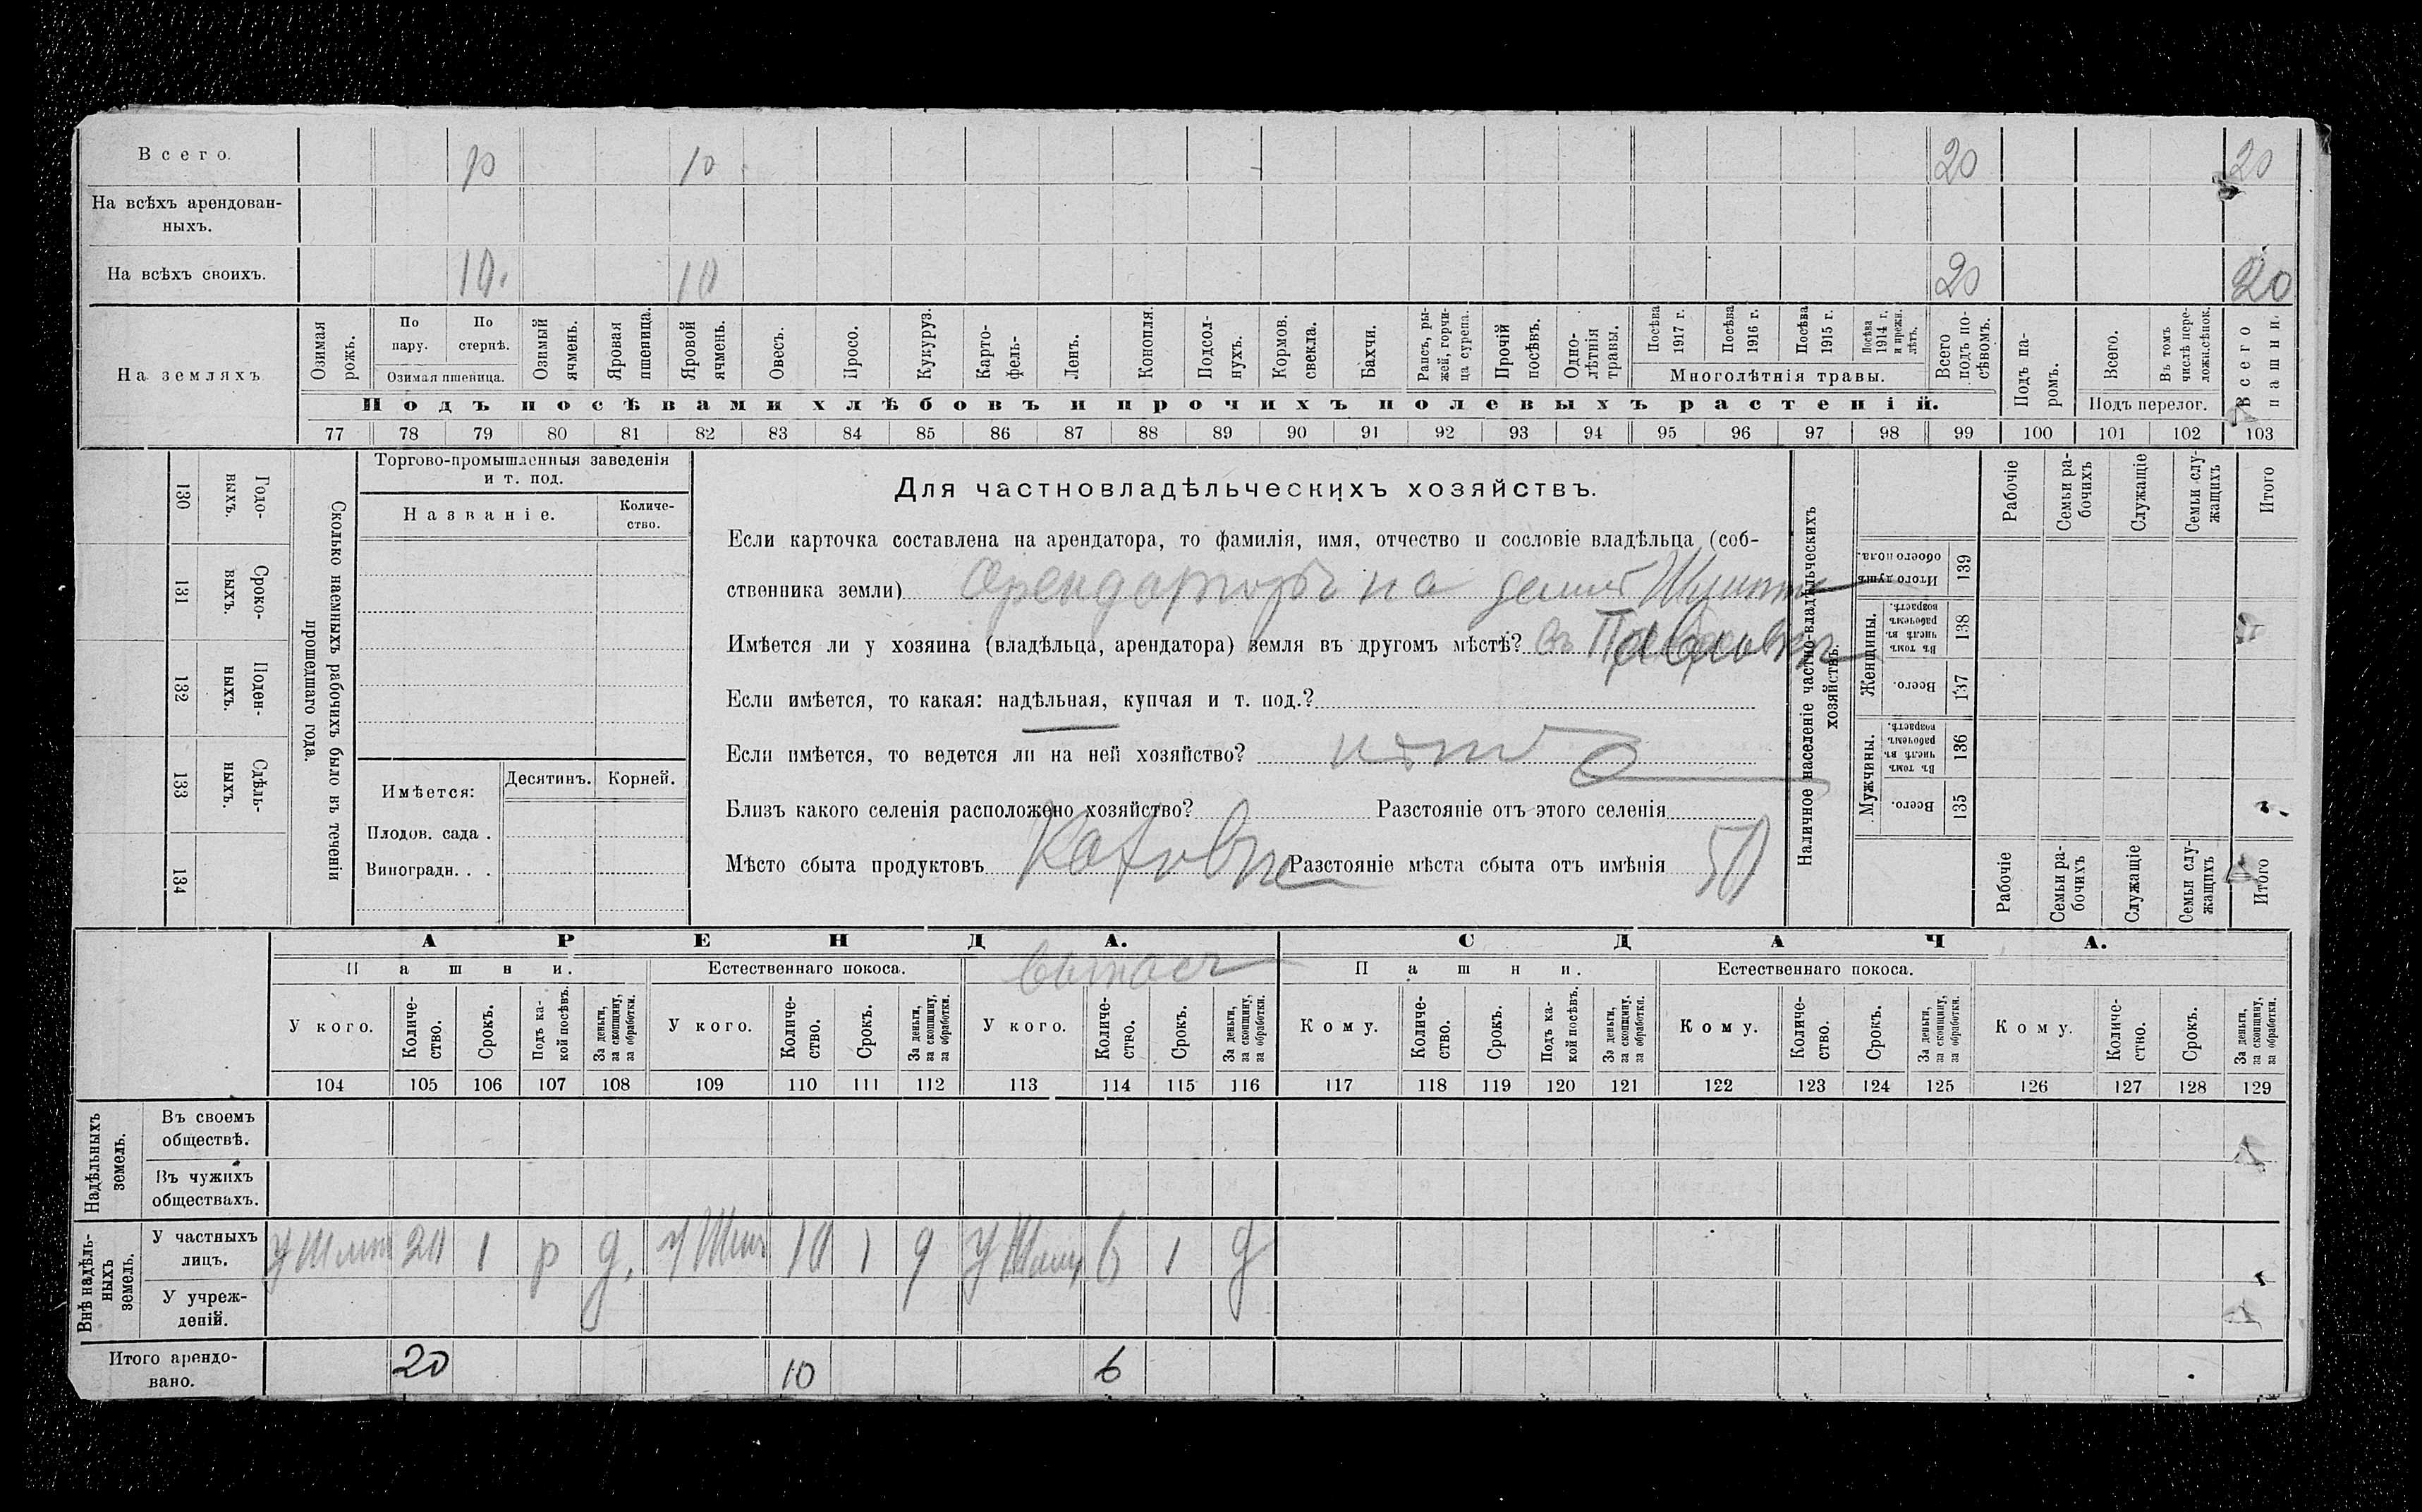 Всего. 10 10 20 20
На всѣхъ арендован-
ныхъ.
На всѣхъ своихъ. 10. 10 20 20
На земляхъ
Озимая рожь.
По пару.
По стернѣ.
Озимая пшеница.
Озимый ячмень.
Яровая пшеница.
Яровой ячмень.
Овесъ.
Просо.
Кукуруз.
Карто-
фель-
Ленъ.
Конопля.
Подсол-
нухъ.
Кормов. свекла.
Бахчи.
Рапсъ, ры-
жей, горчи-
ца сурепа.
Прочій посѣвъ.
Одно-
лѣтнія травы.
Посѣва 1917 г.
Посѣва 1916 г.
Посѣва 1915 г.
Посѣва 1914 г. и прежн. лѣтъ.
Многолѣтнія травы.
Всего подъ по-
сѣвомъ.
Подъ па-
ромъ.
Всего.
Въ томъ числѣ пере-
ложн.сѣнок.
Подъ перелог.
Всего пашни.
Подъ посѣвами хлѣбовъ и прочихъ полевыхъ растеній.
77 78 79 80 81 82 83 84 85 86 87 88 89 90 91 92 93 94 95 96 97 98 99 100 101 102 103
130 Годо-
выхъ.
131 Сроко-
выхъ.
132 Поден-
ныхъ.
133 Сдѣль-
ныхъ.
134
Сколько наемныхъ рабочихъ было въ теченіи
прошедшаго года.
Торгово-промышленныя заведенія
и т. под.
Названіе.
Количе-
ство.
Имѣется:
Десятинъ.
Корней.
Плодов. сада .
Виноградн. . .
Для частновладѣльческихъ хозяйствъ.
Если карточка составлена на арендатора, то фамилія, имя, отчество и сословіе владѣльца (соб-
ственника земли) Арендаторъ на
Имѣется ли у хозяина (владѣльца, арендатора) земля въ другомъ мѣстѣ? въ Павловкѣ
Если имѣется, то какая: надѣльная, купчая и т. под.?
Если имѣется, то ведется ли на ней хозяйство? нѣтъ
Близъ какого селенія расположено хозяйство? Разстояніе отъ этого селенія
Мѣсто сбыта продуктовъ Каховке Разстояніе мѣста сбыта отъ имѣнія 50
Наличное населеніе частно-владѣльческихъ
хозяйствъ.
Рабочіе
Семьи ра-
бочихъ
Служащіе
Семьи слу-
жащихъ
Итого
Итого душъ обоего пола. 139
Женщины.
Въ томъ числѣ въ рабочемъ возрастѣ. 138
Всего. 137
Мужчины.
Въ томъ числѣ въ рабочемъ возрастѣ. 136
Всего. 135
Рабочіе
Семьи ра-
бочихъ
Служащіе
Семьи слу-
жащихъ
Итого
АРЕНДА.
СДАЧА.
Пашни.
Естественнаго покоса.
выпасъ
Пашни.
Естественнаго покоса.
У кого.
Количе-
ство.
Срокъ.
Подъ ка-
кой посѣвъ.
За деньги, за скопщину, за обработки.
У кого.
Количе-
ство.
Срокъ.
За деньги, за скопщину, за обработки.
У кого.
Количе-
ство.
Срокъ.
За деньги, за скопщину, за обработки.
Кому.
Количе-
ство.
Срокъ.
Подъ ка-
кой посѣвъ.
За деньги, за скопщину, за обработки.
Кому.
Количе-
ство.
Срокъ.
За деньги, за скопщину, за обработки.
Кому.
Количе-
ство.
Срокъ.
За деньги, за скопщину, за обработки.
104 105 106 107 108 109 110 111 112 113 114 115 116 117 118 119 120 121 122 123 124 125 126 127 128 129
Надѣльныхъ земель.
Въ своемъ
обществѣ.
Въ чужихъ
обществахъ.
Внѣ надѣль-
ныхъ земель.
У частныхъ
лицъ. у 20 1 р д. у 10 1 д у 6 1 д
У учреж-
деній.
Итого арендо-
вано. 20 10 6